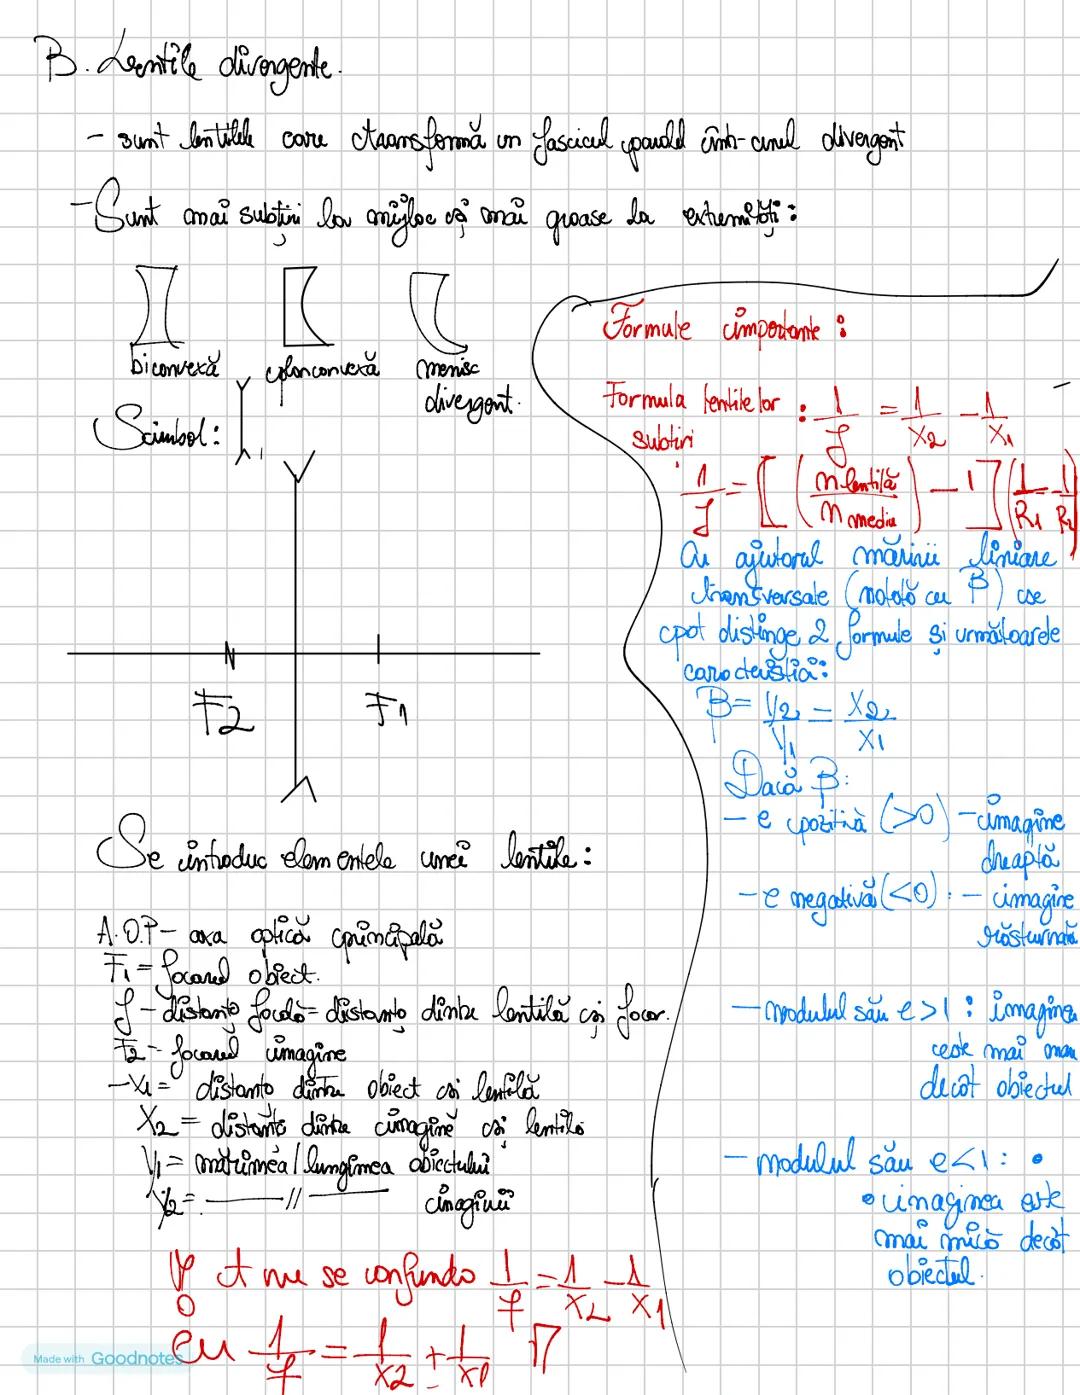 B. Lentile divergente.
- sunt lentilele care transformă un fascicul paralel într-unul divergent
- Sunt mai subțiri la mijloc și mai groase la extremități:
biconvexă planconvexă menisc
divergent.
Simbol:
F2 F1
Se introduc elementele unei lentile:
A.O.P - axa optică principală
F1 = focarul obiect.
f - distanța focală = distanța dintre lentilă și focar.
F2 - focarul imagine
-x1 = distanța dintre obiect și lentilă
x2 = distanța dintre imagine și lentilă
y1 = mărimea/lungimea obiectului
y2 = —— // —— imaginii
! A nu se confunda 1/f = 1/x2 - 1/x1
cu 1/f = 1/x2 + 1/x1 !
Formule importante:
Formula lentilelor : 1/f = 1/x2 - 1/x1
subțiri
1/f = [(n lentilă / n mediu) - 1] (1/R1 - 1/R2)
Cu ajutorul măririi liniare
transversale (notată cu β) se
pot distinge 2 formule și următoarele
caracteristici:
β = y2/y1 = x2/x1
Dacă β:
- e pozitivă (>0) - imagine
dreaptă
- e negativă (<0): - imagine
răsturnată
- modulul său e >1 : imaginea
este mai mare
decât obiectul
- modulul său e <1 : •
• imaginea este
mai mică decât
obiectul.
Made with Goodnotes